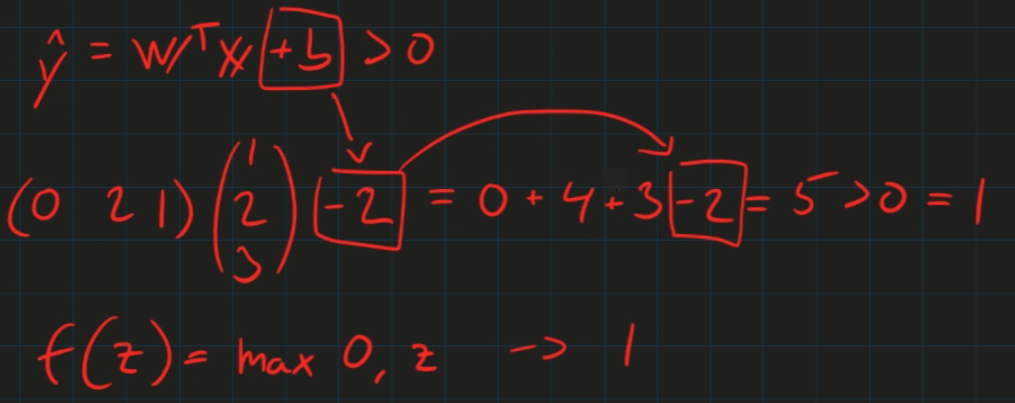 ŷ = wᵀx + b > 0
(0 2 1) (1 2 3) - 2 = 0 + 4 + 3 - 2 = 5 > 0 = 1
f(z) = max 0, z -> 1